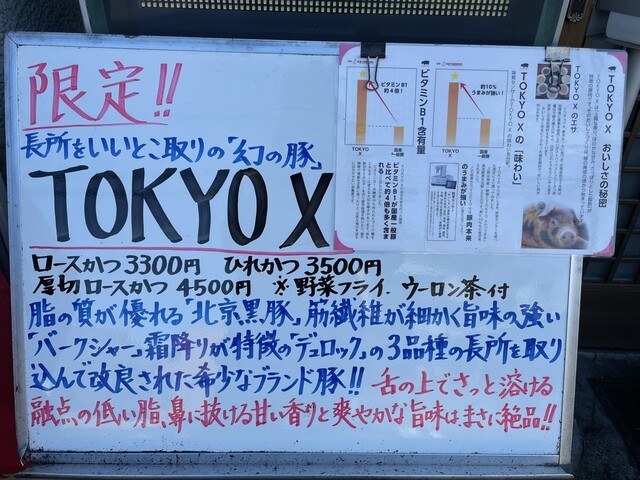 限定!!
長所をいいとこ取りの「幻の豚」
TOKYO X
ロースかつ3300円 ひれかつ3500円
厚切ロースかつ4500円 ※野菜フライ、ウーロン茶付
脂の質が優れる「北京黒豚」筋繊維が細かく旨味の強い
「バークシャー」霜降りが特徴のデュロック」の3品種の長所を取り
込んで改良された希少なブランド豚!! 舌の上でさっと溶ける
融点の低い脂、鼻に抜ける甘い香りと爽やかな旨味は、まさに絶品!!
TOKYO X おいしさの秘密
TOKYO Xのエサ
TOKYO Xの「味わい」
約10%
うまみが強い!
TOKYO
X
国産
一般豚
のうまみが強い
ビタミンB1含有量
ビタミンB1
約4倍!
TOKYO
X
国産
一般豚
ビタミンB1が国産一般豚
と比べて約4倍も多く含ま
れる